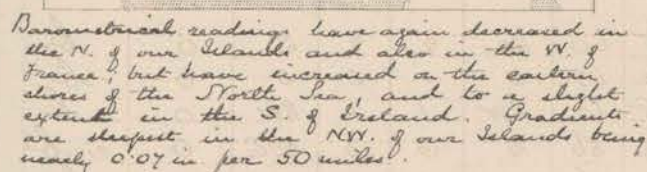 Barometrical readings have again decreased in
the N. of our Islands and also in the W. of
France; but have increased on the eastern
shores of the North Sea, and to a slight
extent in the S. of Ireland. Gradients
are steepest in the NW. of our Islands being
nearly 0.07 in. per 50 miles.